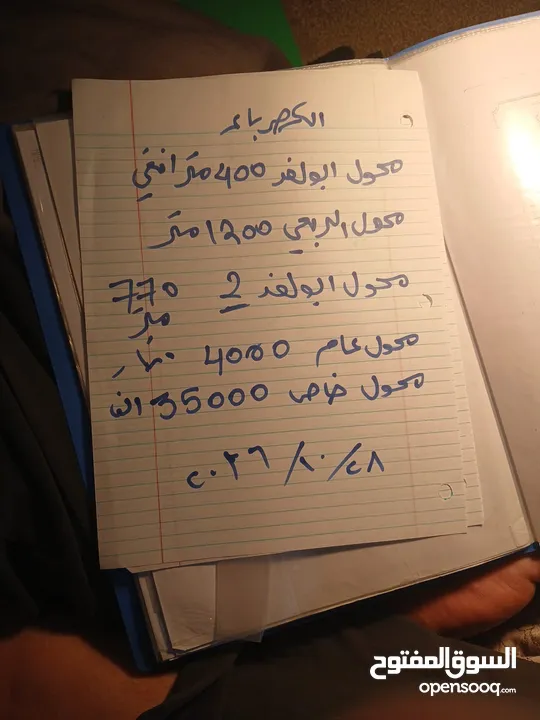 الكهرباء
محول ابولفد 400 متر انفي
محول الربعي 1200 متر
محول ابولفد 2 770
متر
محول عام 4000
محول خاص 35000 الف
٢٨/١٠/٢٠٢٦
السوق المفتوح
opensooq.com